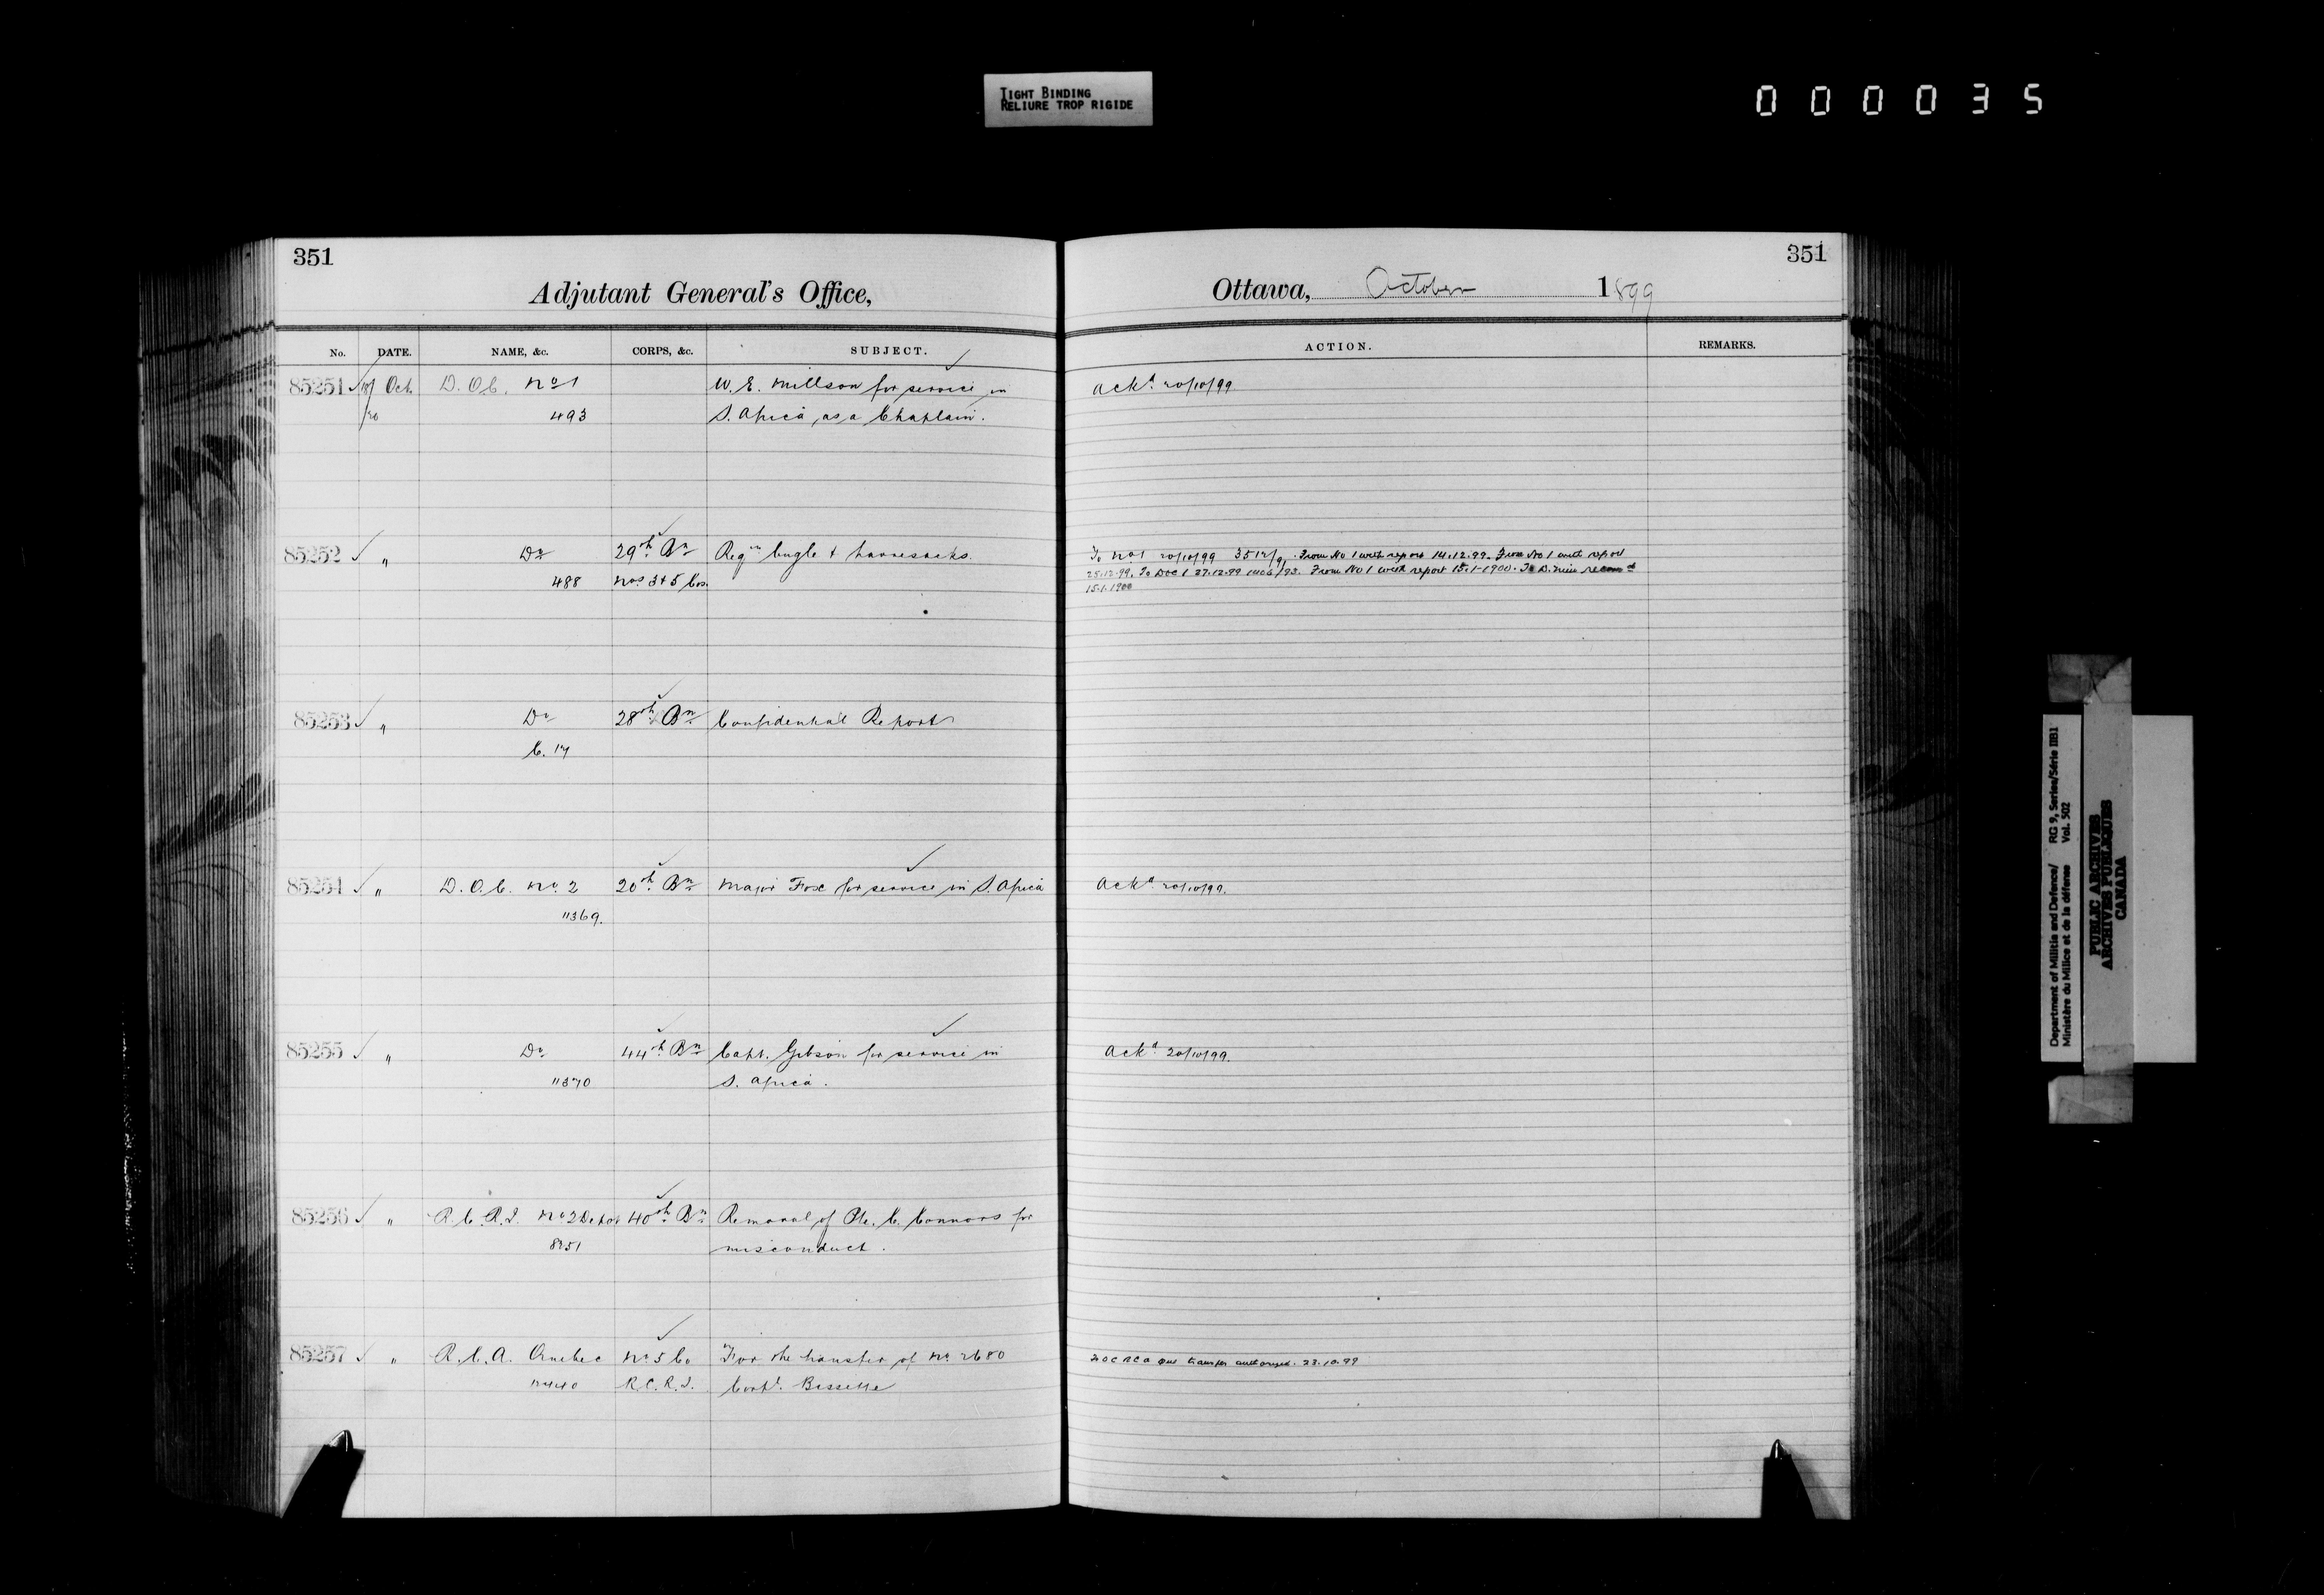 TIGHT BINDING
RELIURE TROP RIGIDE
000035
351
Adjutant General's Office,
No. DATE. NAME, &c. CORPS, &c. SUBJECT.
85251 19/20 Oct. D.O.C. No 1 W. E. Millson for service in
493 S. Africa, as a Chaplain.
85252 " Do 29th Bn Reqn bugle & haversacks.
488 Nos 3 & 5 Cos.
85253 " Do 28th Bn Confidential Report
C. 17
85254 " D.O.C. No. 2 20th Bn Major Fox for service in S. Africa
11369.
85255 " Do 44th Bn Capt. Gibson for service in
11370 S. Africa.
85256 " R.C.R.I. No 2 Depot 40th Bn Removal of Pte. C. Connors for
8251 misconduct.
85257 " R.C.A. Quebec No. 5 Co For the transfer of No. 2680
R.C.R.I. Corpl. Bissette
351
Ottawa, October 1899
ACTION. REMARKS.
Ackd. 20/10/99
To No 1 20/10/99 . From No 1 with report 14.12.99. From No 1 with report
25.12.99. To DOC 1 27.12.99 From No 1 with report 15.1.1900. To D.
15.1.1900
Ackd. 20/10/99.
Ackd. 20/10/99.
transfer authorized. 23.10.99
Department of Militia and Defence/ RG 9, Series/Série IIB1
Ministère du Milice et de la défense Vol. 502
PUBLIC ARCHIVES
ARCHIVES PUBLIQUES
CANADA